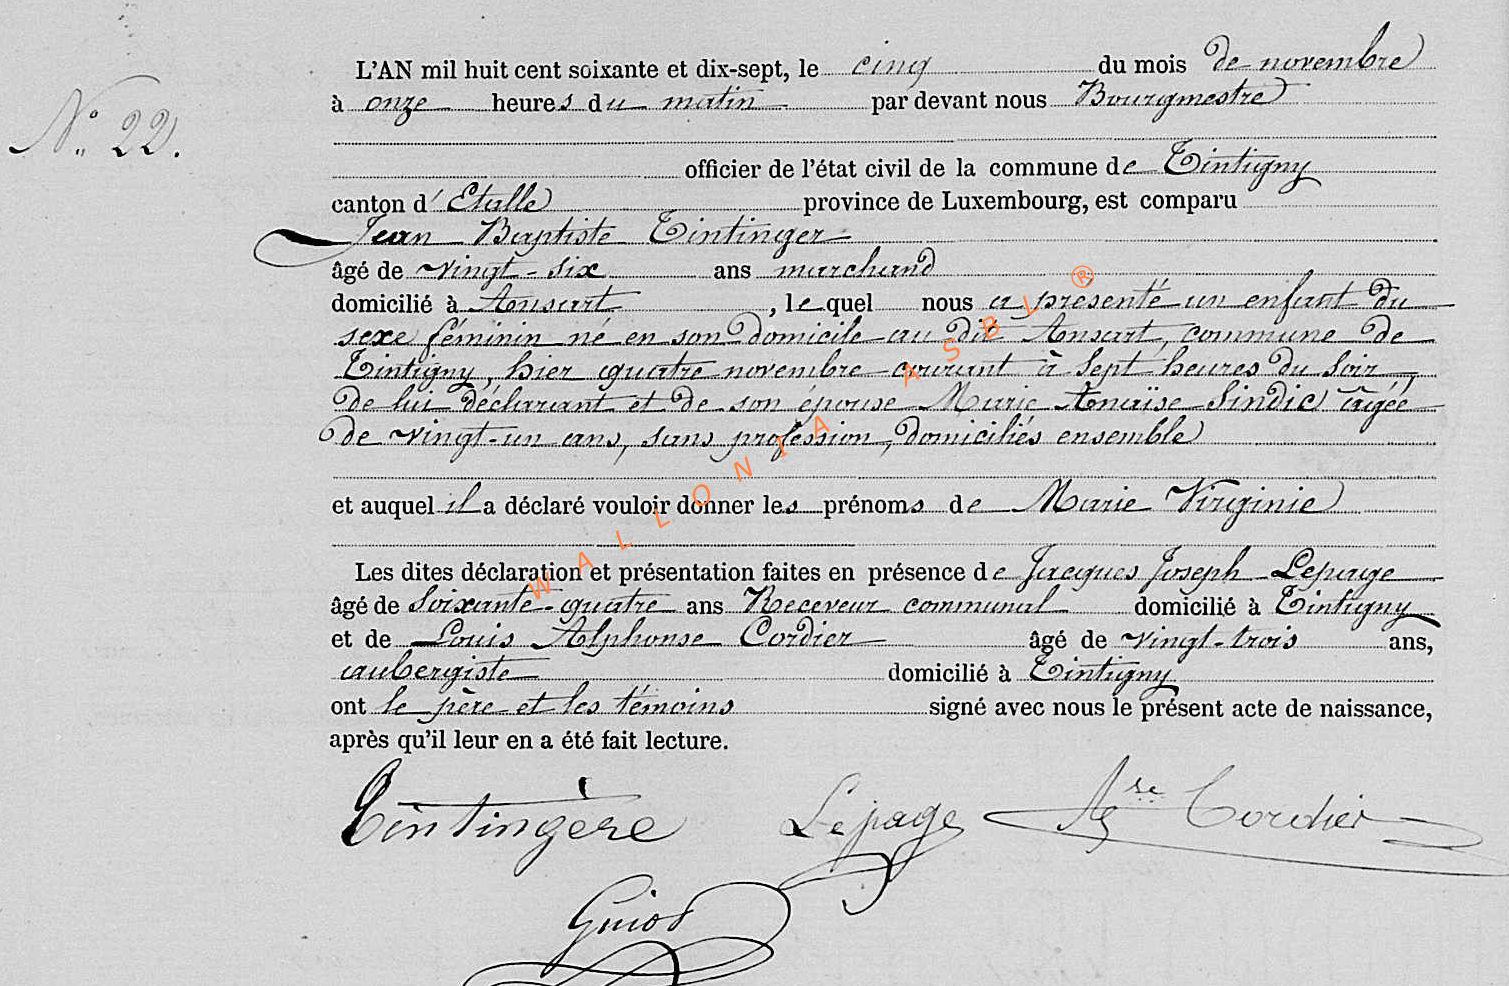 L'AN mil huit cent soixante et dix-sept, le cinq du mois de novembre
à onze heures du matin par devant nous Bourgmestre
N° 22.
officier de l'état civil de la commune de Tintigny
canton d'Etalle province de Luxembourg, est comparu
Jean Baptiste Tintinger
âgé de vingt-six ans marchand
domicilié à Ansart, lequel nous a présenté un enfant du
sexe féminin né en son domicile au dit Ansart, commune de
Tintigny, hier quatre novembre courant à sept heures du soir,
de lui déclarant et de son épouse Marie Anaïse Sindic âgée
de vingt-un ans, sans profession, domiciliés ensemble
et auquel il a déclaré vouloir donner les prénoms de Marie Virginie
Les dites déclaration et présentation faites en présence de Jacques Joseph Lepage
âgé de soixante-quatre ans Receveur communal domicilié à Tintigny
et de Louis Alphonse Cordier âgé de vingt-trois ans,
aubergiste domicilié à Tintigny
ont le père et les témoins signé avec nous le présent acte de naissance,
après qu'il leur en a été fait lecture.
Tintingère Lepage Ase Cordier
Guiot
WALLONIA ASBL ®